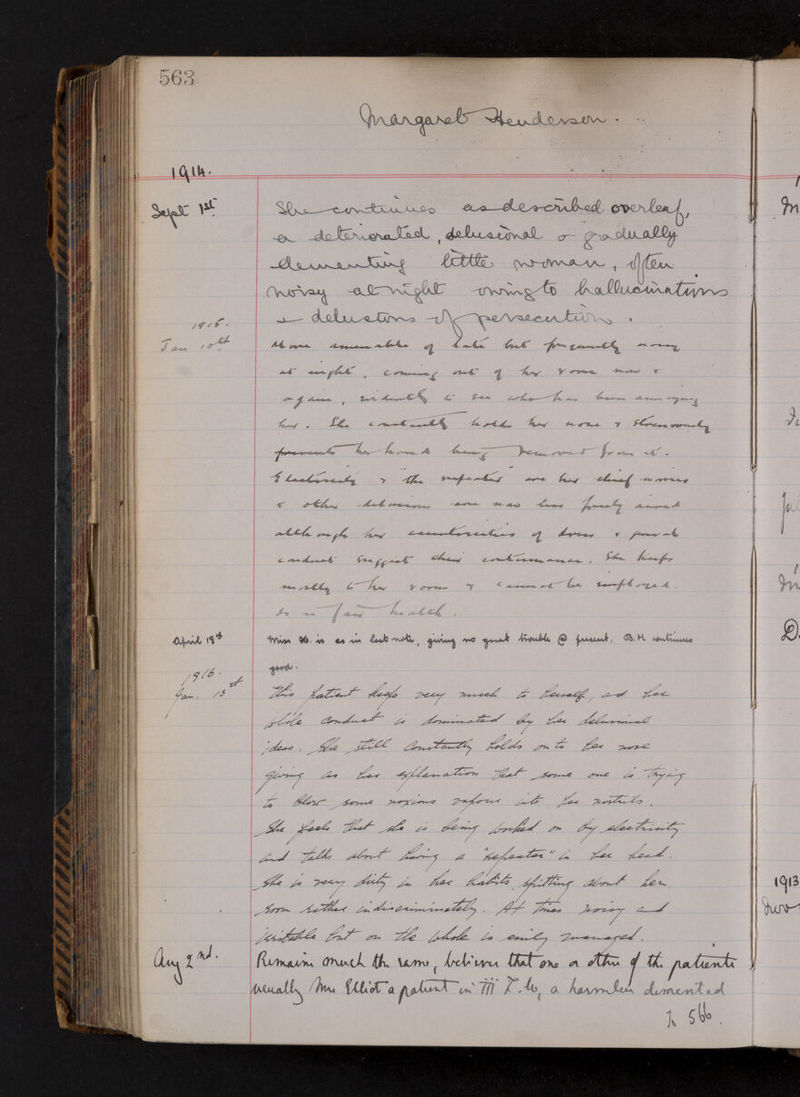 563
Margaret Henderson.
1914.
Sept 1st
She continues as described overleaf,
a deteriorated, delusional & gradually
dementing little woman, often
noisy at night owing to hallucinations
& delusions of persecution.
1915.
Jan 10th
More amenable of late but frequently noisy
at night, coming out of her room now &
again, evidently to see who has been annoying
her. She constantly holds her nose & strenuously
prevents her hand being removed from it.
Electricity & the repeater are her chief worries
& other delusions are now less freely aired
although her eccentricities of dress &
conduct suggest their continuance. She keeps
mostly to her room & cannot be employed.
Is in fair health.
April 18th
Miss H. is as in last note, giving no great trouble @ present. B.H. continues
good.
1916.
Jan. 13th
This patient keeps very much to herself, and her
whole conduct is dominated by her delusional
ideas. She still constantly holds on to her nose
giving as her explanation that some one is trying
to blow some noxious vapour into her nostrils.
She feels that she is being worked on by electricity
and talks about having a "repeater" in her head.
She is very dirty in her habits, spitting about her
room rather indiscriminately. At times noisy and
irritable but on the whole is easily managed.
Aug 2nd.
Remains much the same, believes that one or other of the patients
usually Mrs Elliot a patient in III, a harmless demented
To 566.
1913
Nov